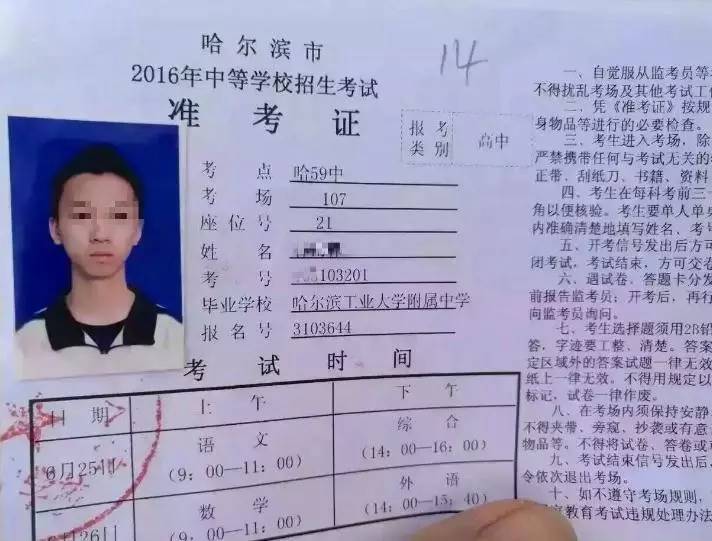 哈尔滨市
2016年中等学校招生考试
准考证
14
报考类别
高中
考点 哈59中
考场 107
座位号 21
姓名
考号 103201
毕业学校 哈尔滨工业大学附属中学
报名号 3103644
考试时间
日期 上午 下午
6月25日 语文 (9:00—11:00) 综合 (14:00—16:00)
月26日 数学 (9:00—11:00) 外语 (14:00—15:40)
一、自觉服从监考员等
不得扰乱考场及其他考试工
二、凭《准考证》按规
身物品等进行的必要检查。
三、考生进入考场，除
严禁携带任何与考试无关的
正带、刮纸刀、书籍、资料
四、考生在每科考前三十
角以便核验。考生要单人单
内准确清楚地填写姓名、考
五、开考信号发出后方可
闭考试，考试结束，方可交卷
六、遇试卷、答题卡分发
前报告监考员；开考后，再行
向监考员询问。
七、考生选择题须用2B铅
答，字迹要工整、清楚。答案
定区域外的答案试题一律无效
纸上一律无效。不得用规定以
标记，试卷一律作废。
八、在考场内须保持安静
不得夹带、旁窥、抄袭或有意
物品等。不得将试卷、答卷或
九、考试结束信号发出后，
令依次退出考场。
十、如不遵守考场规则，
教育考试违规处理办法